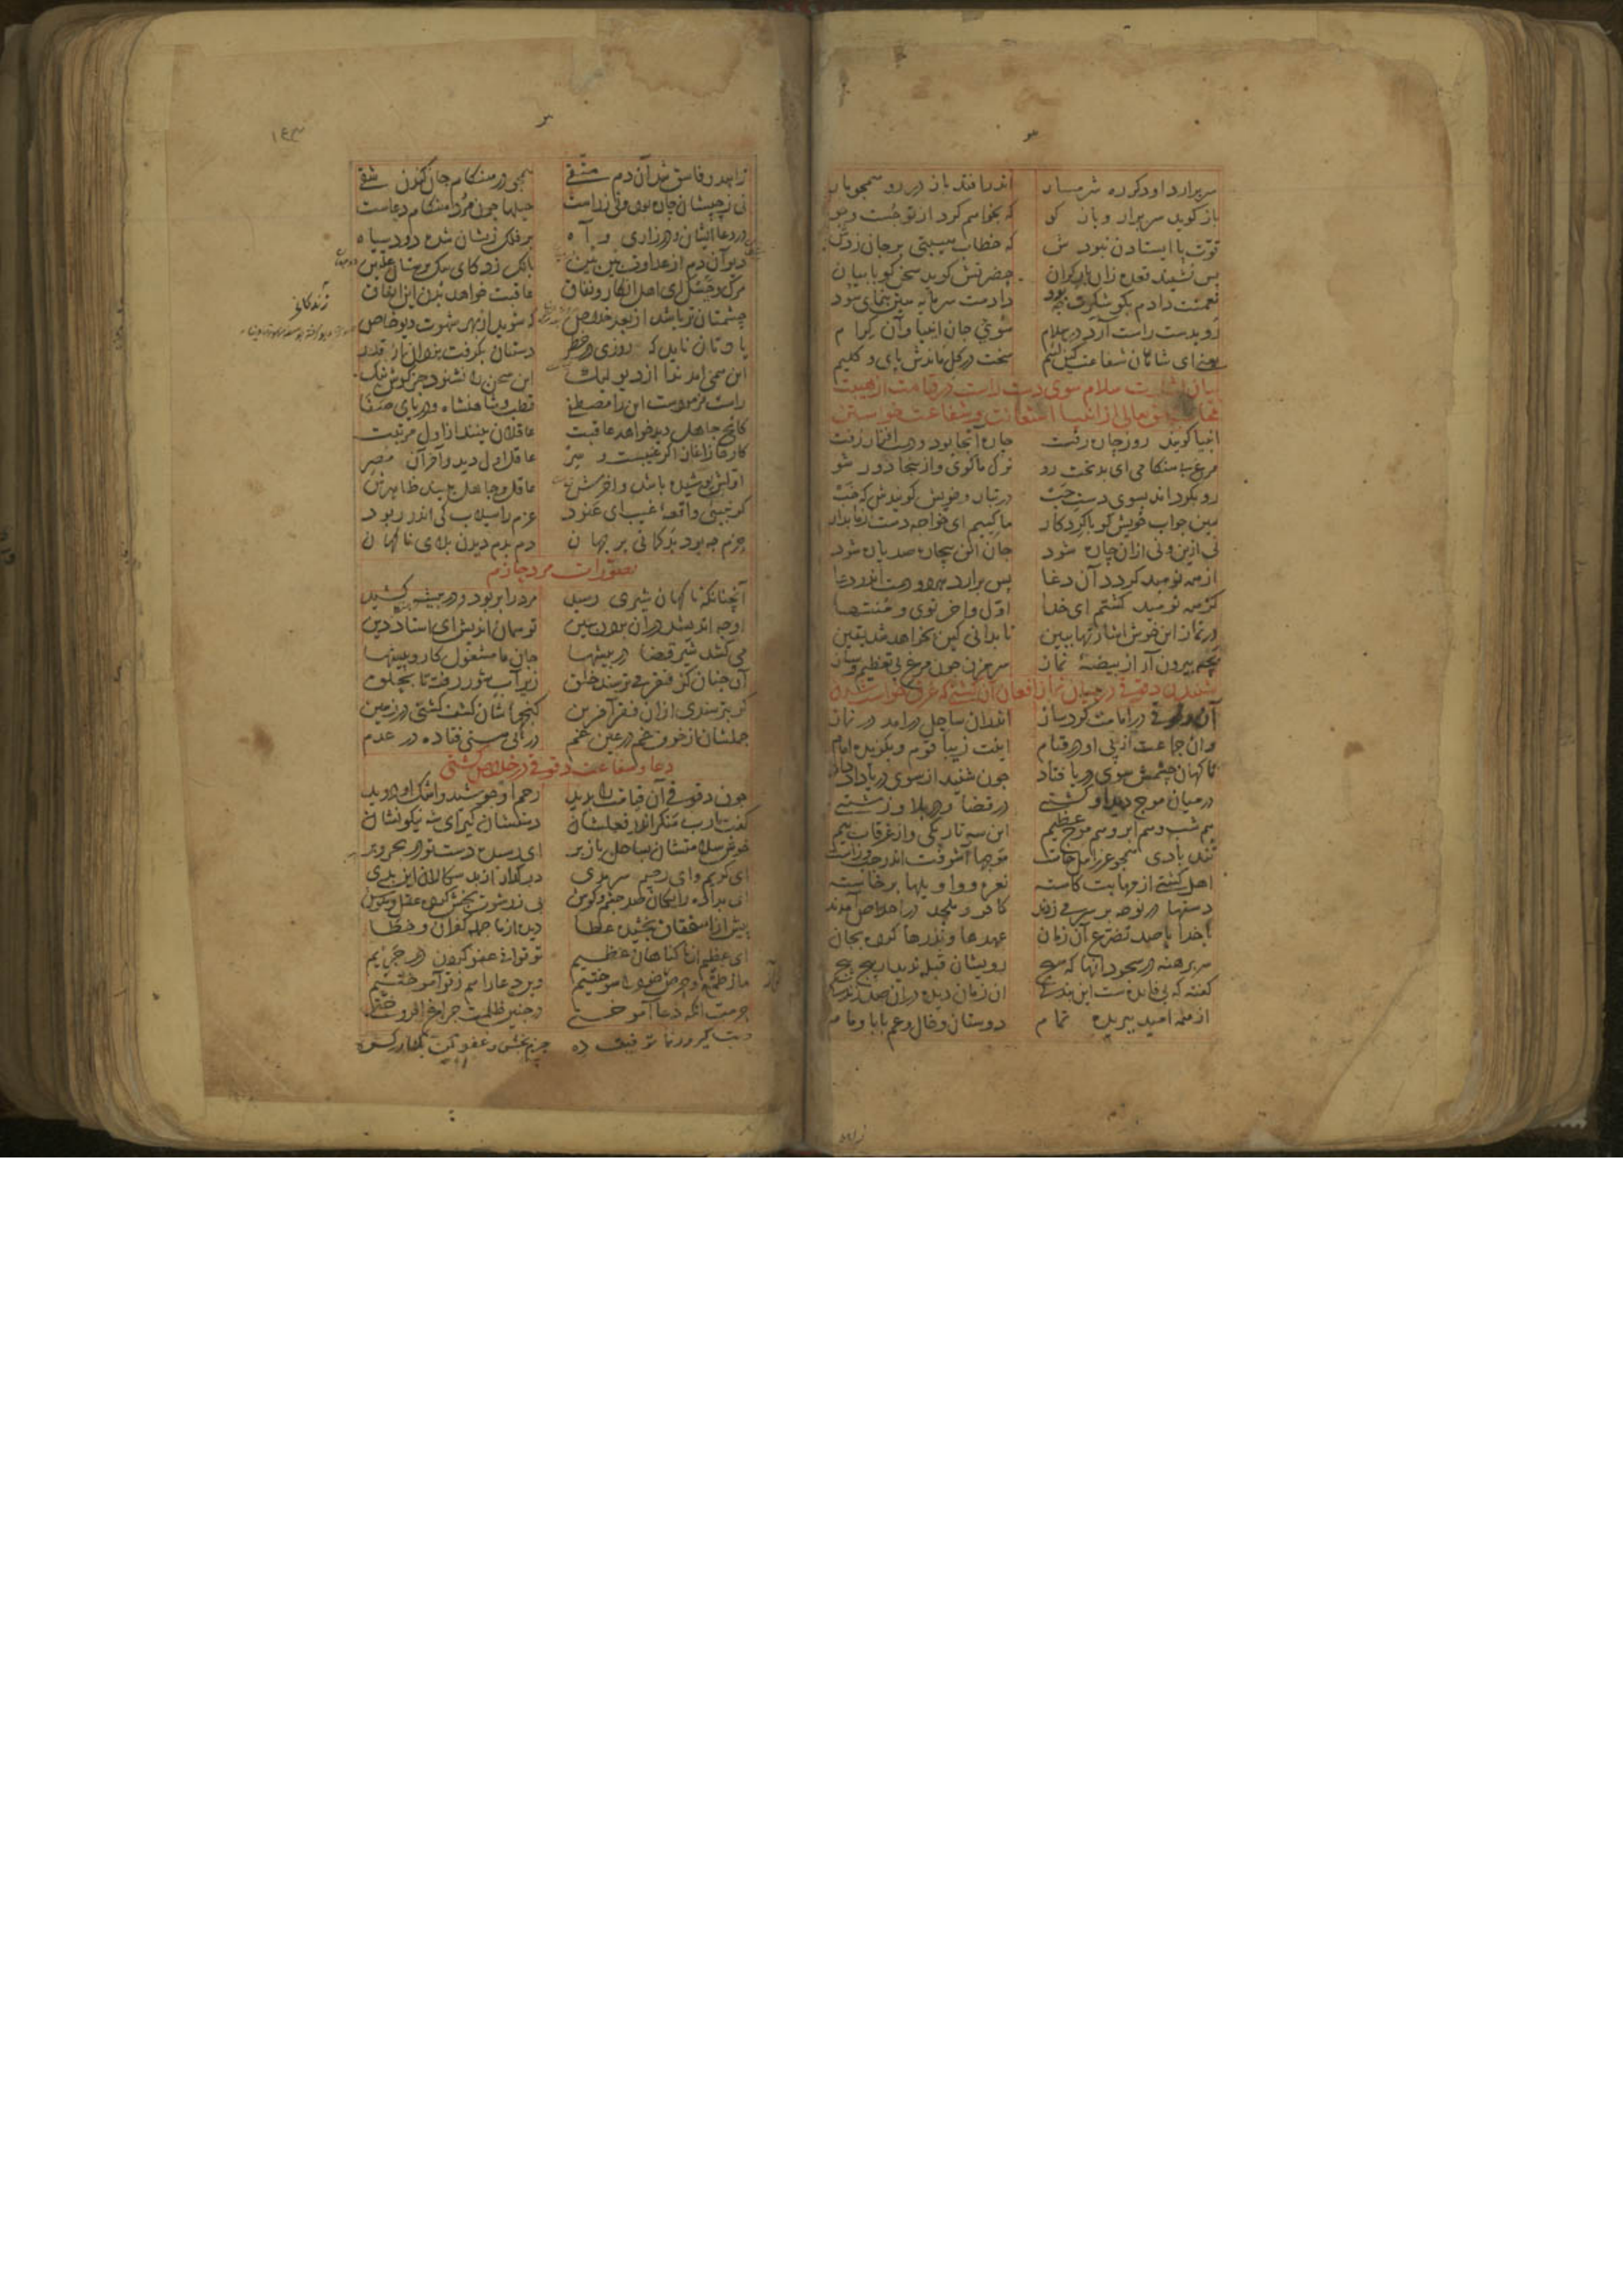 سر برارد او دکر ره شرمسار اندر افتد باز در رو همچو مار
باز کوید سر برار و باز کو که بخواهم کرد از تو جست و جو
قوت پا ایستادن نبودش که خطاب هیبتی بر جان زدش
پس نشیند قعده زان بار کران حضرتش کوید سخن کو با بیان
نعمتت دادم بکو شکرت چه بود دادمت سرمایه هین بنمای سود
رو بدست راست آرد در سلام سوی جان انبیا و آن کرام
یعنی ای شاهان شفاعت کین لئیم سخت در کل ماندش پای و کلیم
بیان اشارت سلام سوی دست راست در قیامت از هیبت
حق تعالی از انبیا استعانت و شفاعت خواستن
انبیا کویند روز چاره رفت چاره آنجا بود و دست افزار زفت
مرغ بی هنکامی ای بدبخت رو ترک ما کوی و از ینجا دور شو
رو بکرداند بسوی دست چپ در تبار و خویش کویندش که خپ
هین جواب خویش کو با کردکار ما کییم ای خواجه دست از ما بدار
نی ازین و نی ازان چاره شود جان آن بیچاره صد پاره شود
از همه نومید کردد آن دغا پس برارد هر دو دست اندر دعا
کز همه نومید کشتم ای خدا اول و اخر توی و منتها
در نماز این خوش اشارتها ببین تا بدانی کین بخواهد شد یقین
بچه بیرون آر از بیضهٔ نماز سر مزن چون مرغ بی تعظیم و ساز
شنیدن دقوقی در میان نماز افغان آن کشتی که غرق خواست شدن
آن دقوقی در امامت کرد ساز اندران ساحل در امد در نماز
وان جماعت از پی او در قیام اینت زیبا قوم و بکزیده امام
ناکهان چشمش سوی دریا فتاد چون شنید از سوی دریا داد داد
در میان موج دید او کشتیی در قضا و در بلا و زشتیی
هم شب و هم ابر و هم موج عظیم این سه تاریکی و از غرقاب بیم
تند بادی همچو عزرائیل خاست موجها آشوفت اندر چپ و راست
اهل کشتی از مهابت کاسته نعره و واویلها برخاسته
دستها در نوحه بر سر می زدند کافر و ملحد در اخلاص آمدند
با خدا با صد تضرع آن زمان عهدها و نذرها کرده بجان
سر برهنه در سجود آنها که هیچ رویشان قبله ندید از پیچ پیچ
کفته که بی فایده ست این بندکی ان زمان دیده دران صد زندکی
از همه امید ببریده تمام دوستان و خال و عم بابا و مام
زاهد
۱۴۳
زاهد و فاسق شد آن دم متقی همچو در هنکام جان کندن شقی
نی ز چپشان چاره بود و نی ز راست حیلها چون مرد هنکام دعاست
در دعا ایشان و در زاری و آه بر فلک زیشان شده دود سیاه
دیو آن دم از عداوت بین بین بانک زد کای سک پرستان علتین
مرک و جسک ای اهل انکار و نفاق عاقبت خواهد بدن این اتفاق
چشمتان تر باشد از بعد خلاص که شوید از بهر شهوت دیو خاص
یادتان ناید که روزی در خطر دستتان بکرفت یزدان از قدر
این همی امد ندا از دیو لیک این سخن را نشنود جز کوش نیک
راست فرمودست این را مصطفی قطب و شاهنشاه و دریای صفا
کانچه جاهل دید خواهد عاقبت عاقلان بینند از اول مرتبت
کارها ز اغاز اکر غیبست و سر عاقل اول دید و آخر آن مصر
اولش پوشیده باشد و اخر آن عاقل و جاهل ببیند
کر نبینی واقعهٔ غیب ای عنود حزم را سیلاب کی اندر ربود
حزم چه بود بدکمانی بر جهان دم بدم دیدن بلای ناکهان
تصورات مرد حازم
آنچنانکه ناکهان شیری رسید مرد را بربود و در بیشه کشید
او چه اندیشد دران بردن ببین تو همان اندیش ای استاد دین
می کشد شیر قضا در بیشها جان ما مشغول کار و پیشها
آن چنان کز فقر می ترسند خلق زیر آب شور رفته تا بحلق
کر بترسندی ازان فقر آفرین کنجهاشان کشف کشتی در زمین
جملشان از خوف غم در عین غم در پی هستی فتاده در عدم
دعا و شفاعت دقوقی در خلاص کشتی
چون دقوقی آن قیامت را بدید رحم او جوشید و اشک او دوید
کفت یا رب منکر اندر فعلشان دستشان کیر ای شه نیکو نشان
خوش سلامتشان بساحل باز بر ای رسیده دست تو در بحر و بر
ای کریم و ای رحیم سرمدی در کذار از بد سکالان این بدی
ای بداده رایکان صد چشم و کوش بی ز رشوت بخش کرده عقل و هوش
پیش از استحقاق بخشیده عطا دیده از ما جمله کفران و خطا
ای عظیم از ما کناهان عظیم تو توانی عفو کردن در حریم
ما ز طمع و حرص خود را سوختیم وین دعا را هم ز تو آموختیم
حرمت آنکه دعا آموختی در چنین ظلمت چراغ افروختی
دست کیر و ره نما توفیق ده جرم بخش و عفو کن بکشا کره